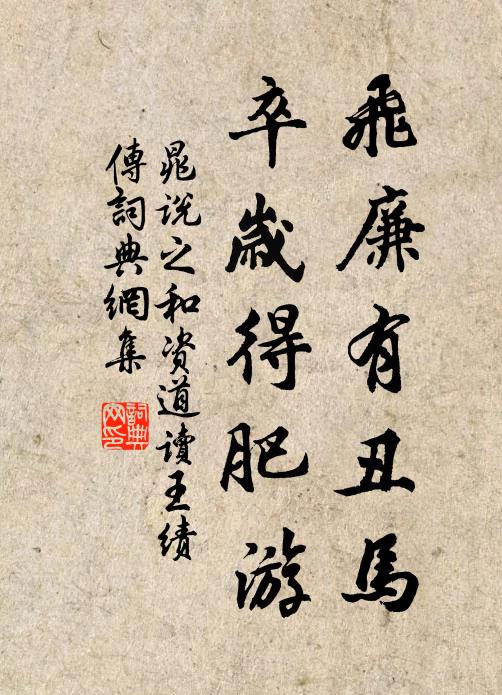 飛廉有丑馬
卒歲得肥游
晁說之和資道讀王績
傳詞典網集
詞典網印